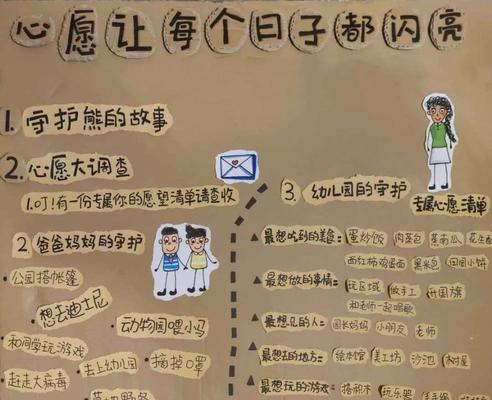 心愿让每个日子都闪亮
1. 守护熊的故事
2. 心愿大调查
1.叮!有一份专属你的愿望清单请查收
2 爸爸妈妈的守护
公园搭帐篷
想去迪士尼
动物园喂小马
和同学玩游戏
去上幼儿园
摘掉口罩
赶走大病毒
3. 幼儿园的守护
专属心愿清单
▲最想吃到的美食: 蛋炒饭 肉蒸包 蒸南瓜
西红柿鸡蛋面 黑米包 田园小饼
▲最想做的事情= 玩区域 做手工 升国旗
和老师一起唱歌
▲最想见的人= 园长妈妈 小朋友 老师
▲最想去的地方= 绘本馆 美工坊 沙池 树屋
▲最想玩的游戏= 搭积木 玩乐器